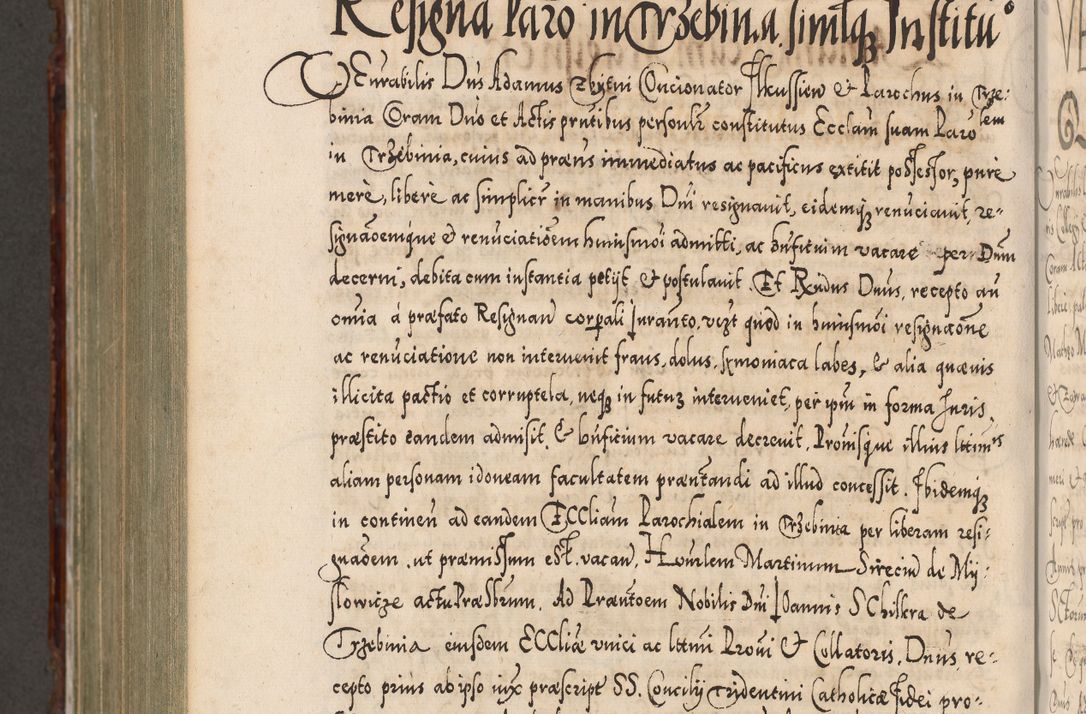 Resigna Paro in Trzebinia simlq3 Institu°
VEnrabilis Dns Adamus Zbytni Concionator Ilkussien et Parochus in Trze:
binia Coram Dno et Actis pntibus personlr constitutus Ecclam suam Parolem
in Trzebinia, cuius ad præns immediatus ac pacificus extitit possessor, pure
merè, liberè ac simplicr in manibus Dni resignauit, eidemq3 renuciauit, re-
signaoemque et renuciatioem huiusmoi admitti, ac bnficium vacare per Dnum
decerni, debita cum instantia petijt et postulauit. Et Rndus Dnus, recepto an
omia á præfato Resignan corpali Iuranto, vizt quod in huiusmoi resignaone
ac renuciatione non interuenit fraus, dolus, symoniaca labes, et alia quæuis
illicita pactio et corruptela, neq3 in futur3 interueniet, per ipm in forma Iuris,
præstito eandem admisit, et bnficium vacare decreuit, Prouisque illius lttimis
aliam personam idoneam facultatem præntandi ad illud concessit. Ibidemq3
in continen ad eandem ECCliam Parochialem in Trzebinia per liberam resi:
gnaoem, ut præmissum est, vacan, Honrlem Martinum Sireciu de My:
slowicze actu Præsbrum, Ad Præntoem Nobilis Dni Ioannis SChilkra de
Trzebinia eiusdem ECCliæ vnici ac lttmi Proui et Collatoris, Dnus, re:
cepto prius ab ipso iux præscript SS. Concilij Tridentini Catholicæ fidei pro: